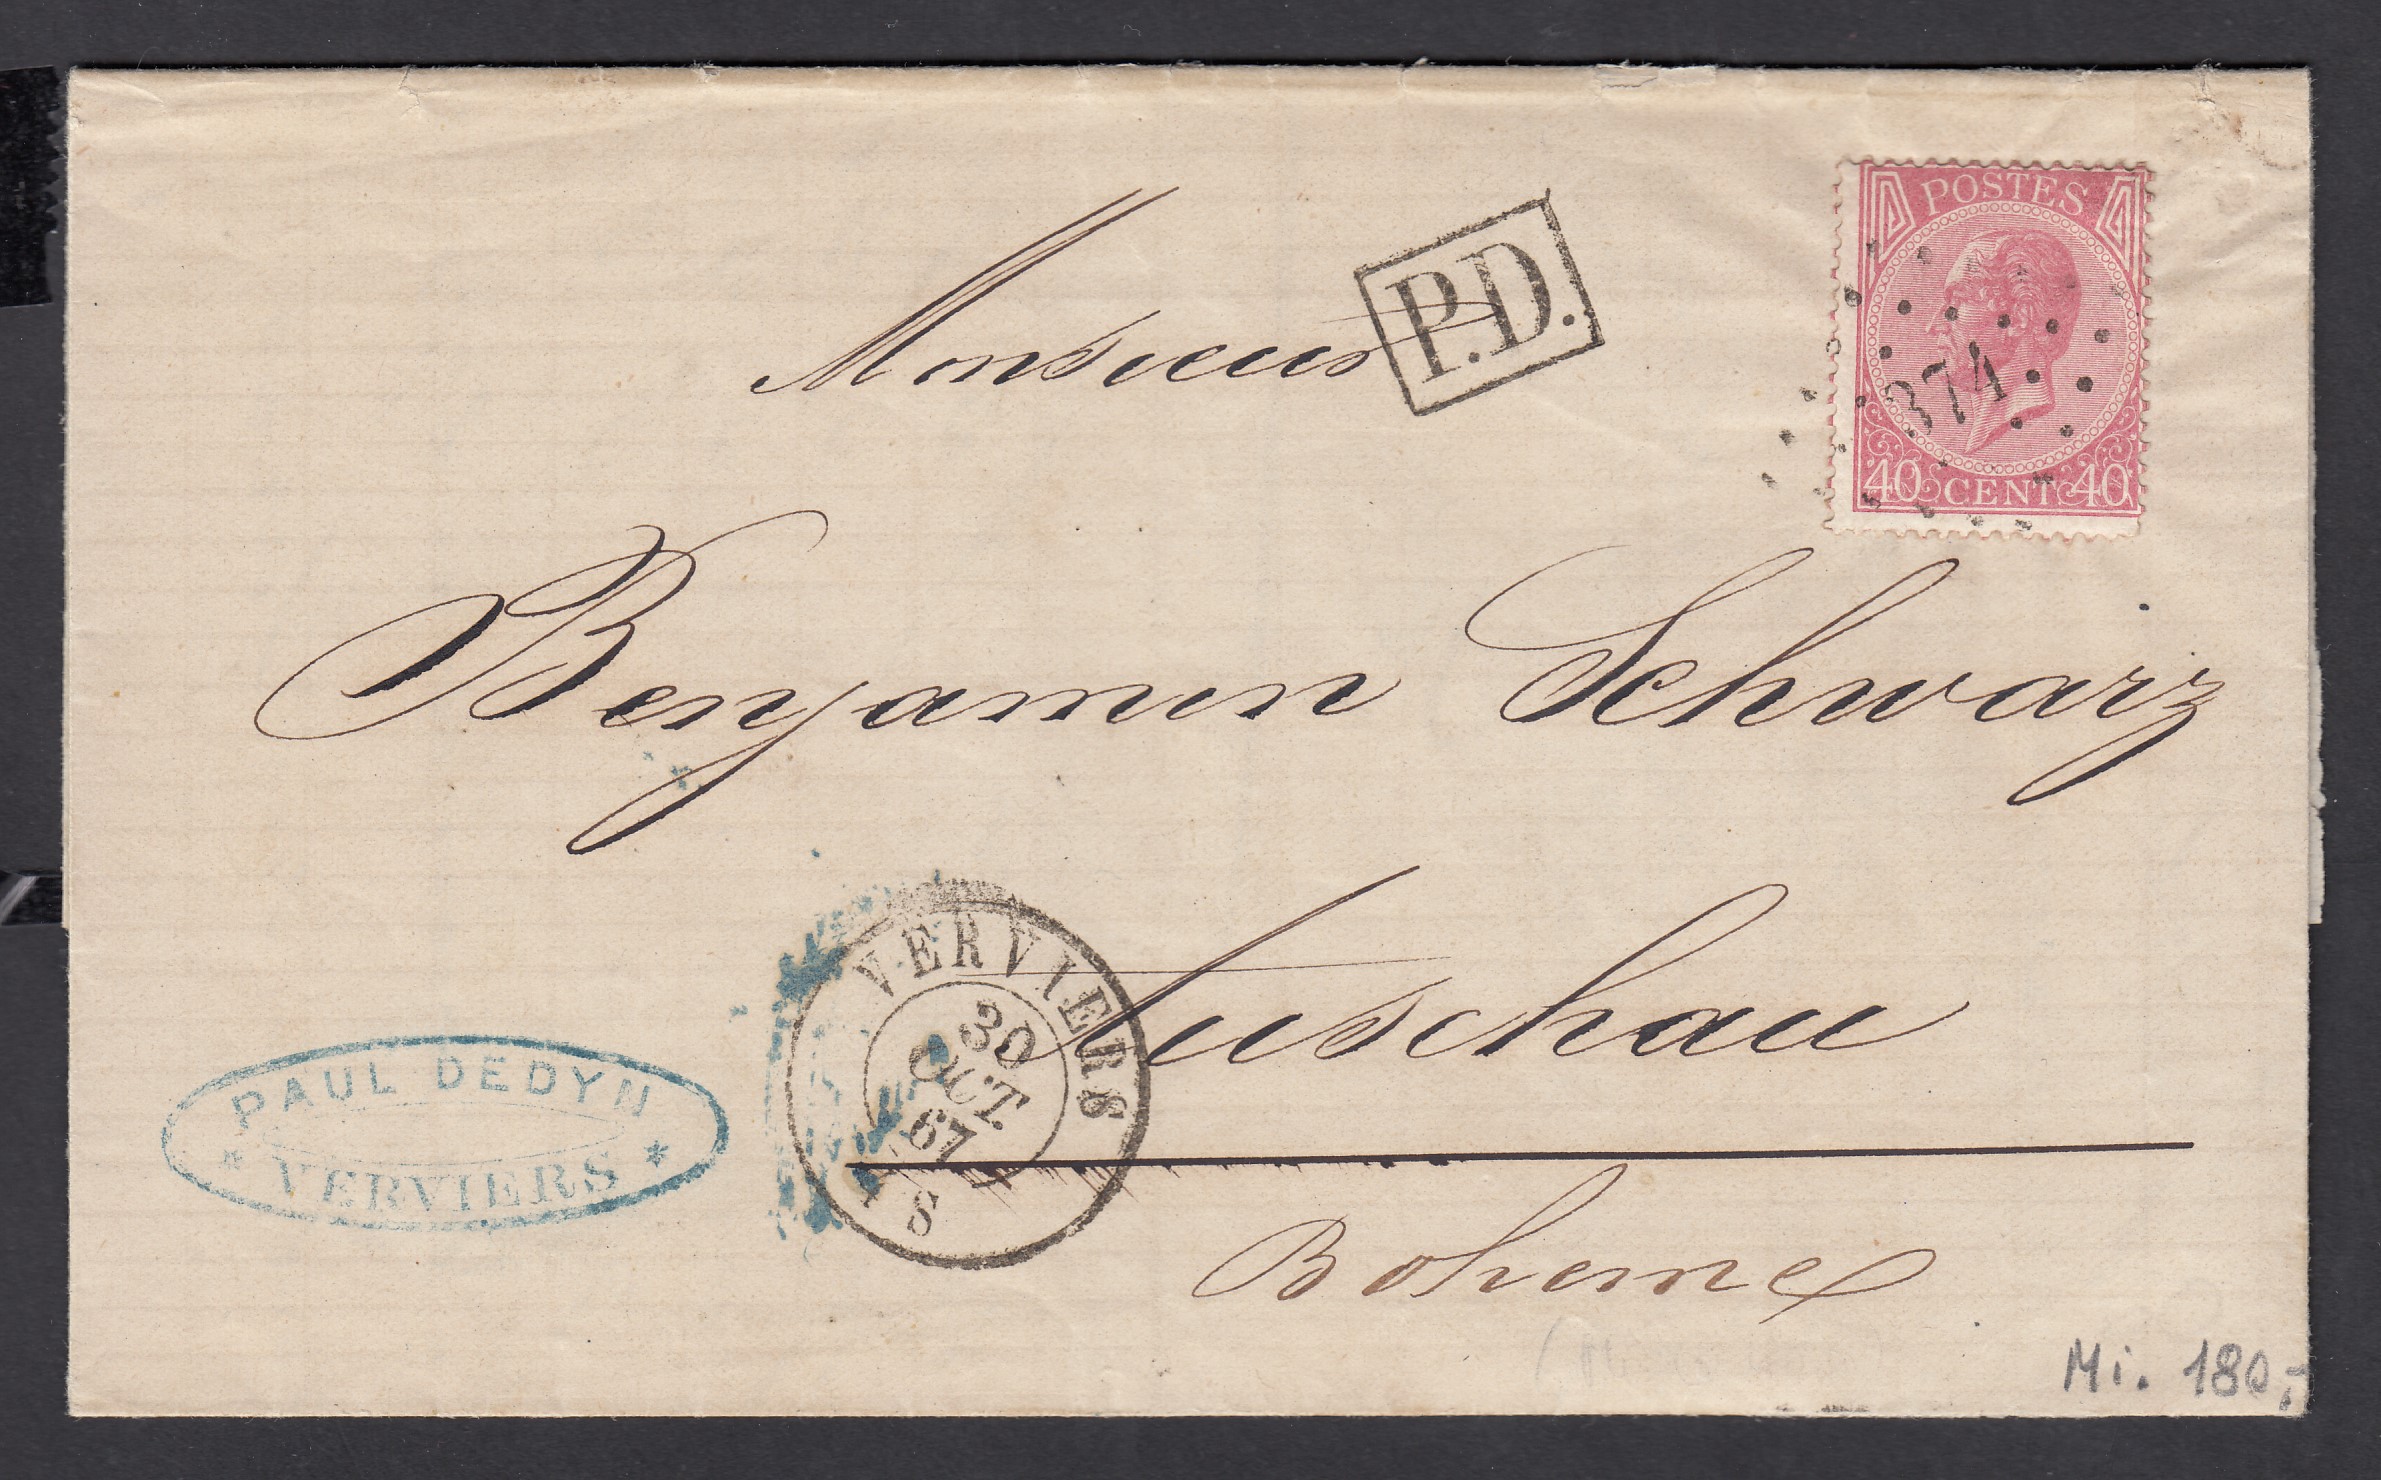 POSTES
40 CENT 40
374
P.D.
Monsieur
Benjamin Schwarz
Tuschau
Boheme
VERVIERS
30
OCT.
67
8
PAUL DEDYN
* VERVIERS *
Mi. 180,-